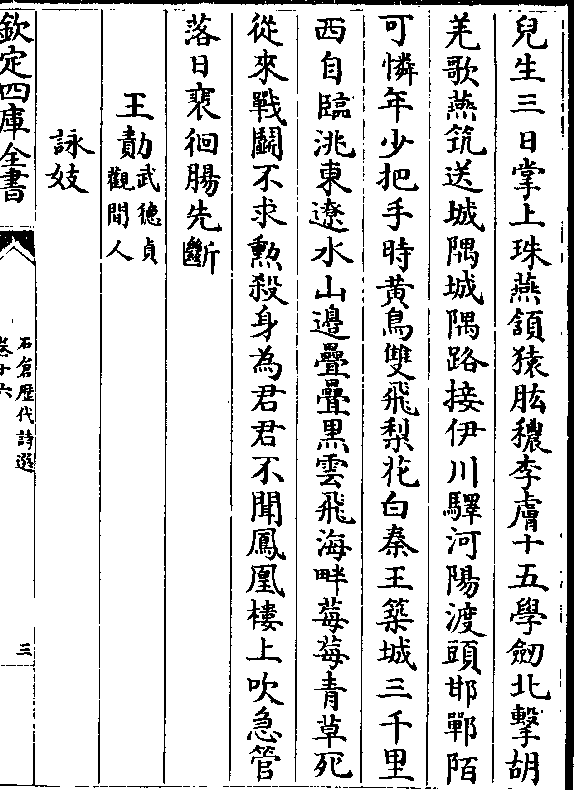 兒生三日掌上珠燕頷猿肱穠李膚十五學劒北擊胡
羌歌燕筑送城隅城隅路接伊川驛河陽渡頭邯鄲陌
可憐年少把手時黃鳥雙飛梨花白秦王築城三千里
西自臨洮東遼水山邊疊疊黑雲飛海畔莓莓青草死
從來戰鬭不求勲殺身為君君不聞鳳凰樓上吹急管
落日裵徊腸先斷
王勣武德貞
觀間人
詠妓
欽定四庫全書
石倉歷代詩選
卷十六
三